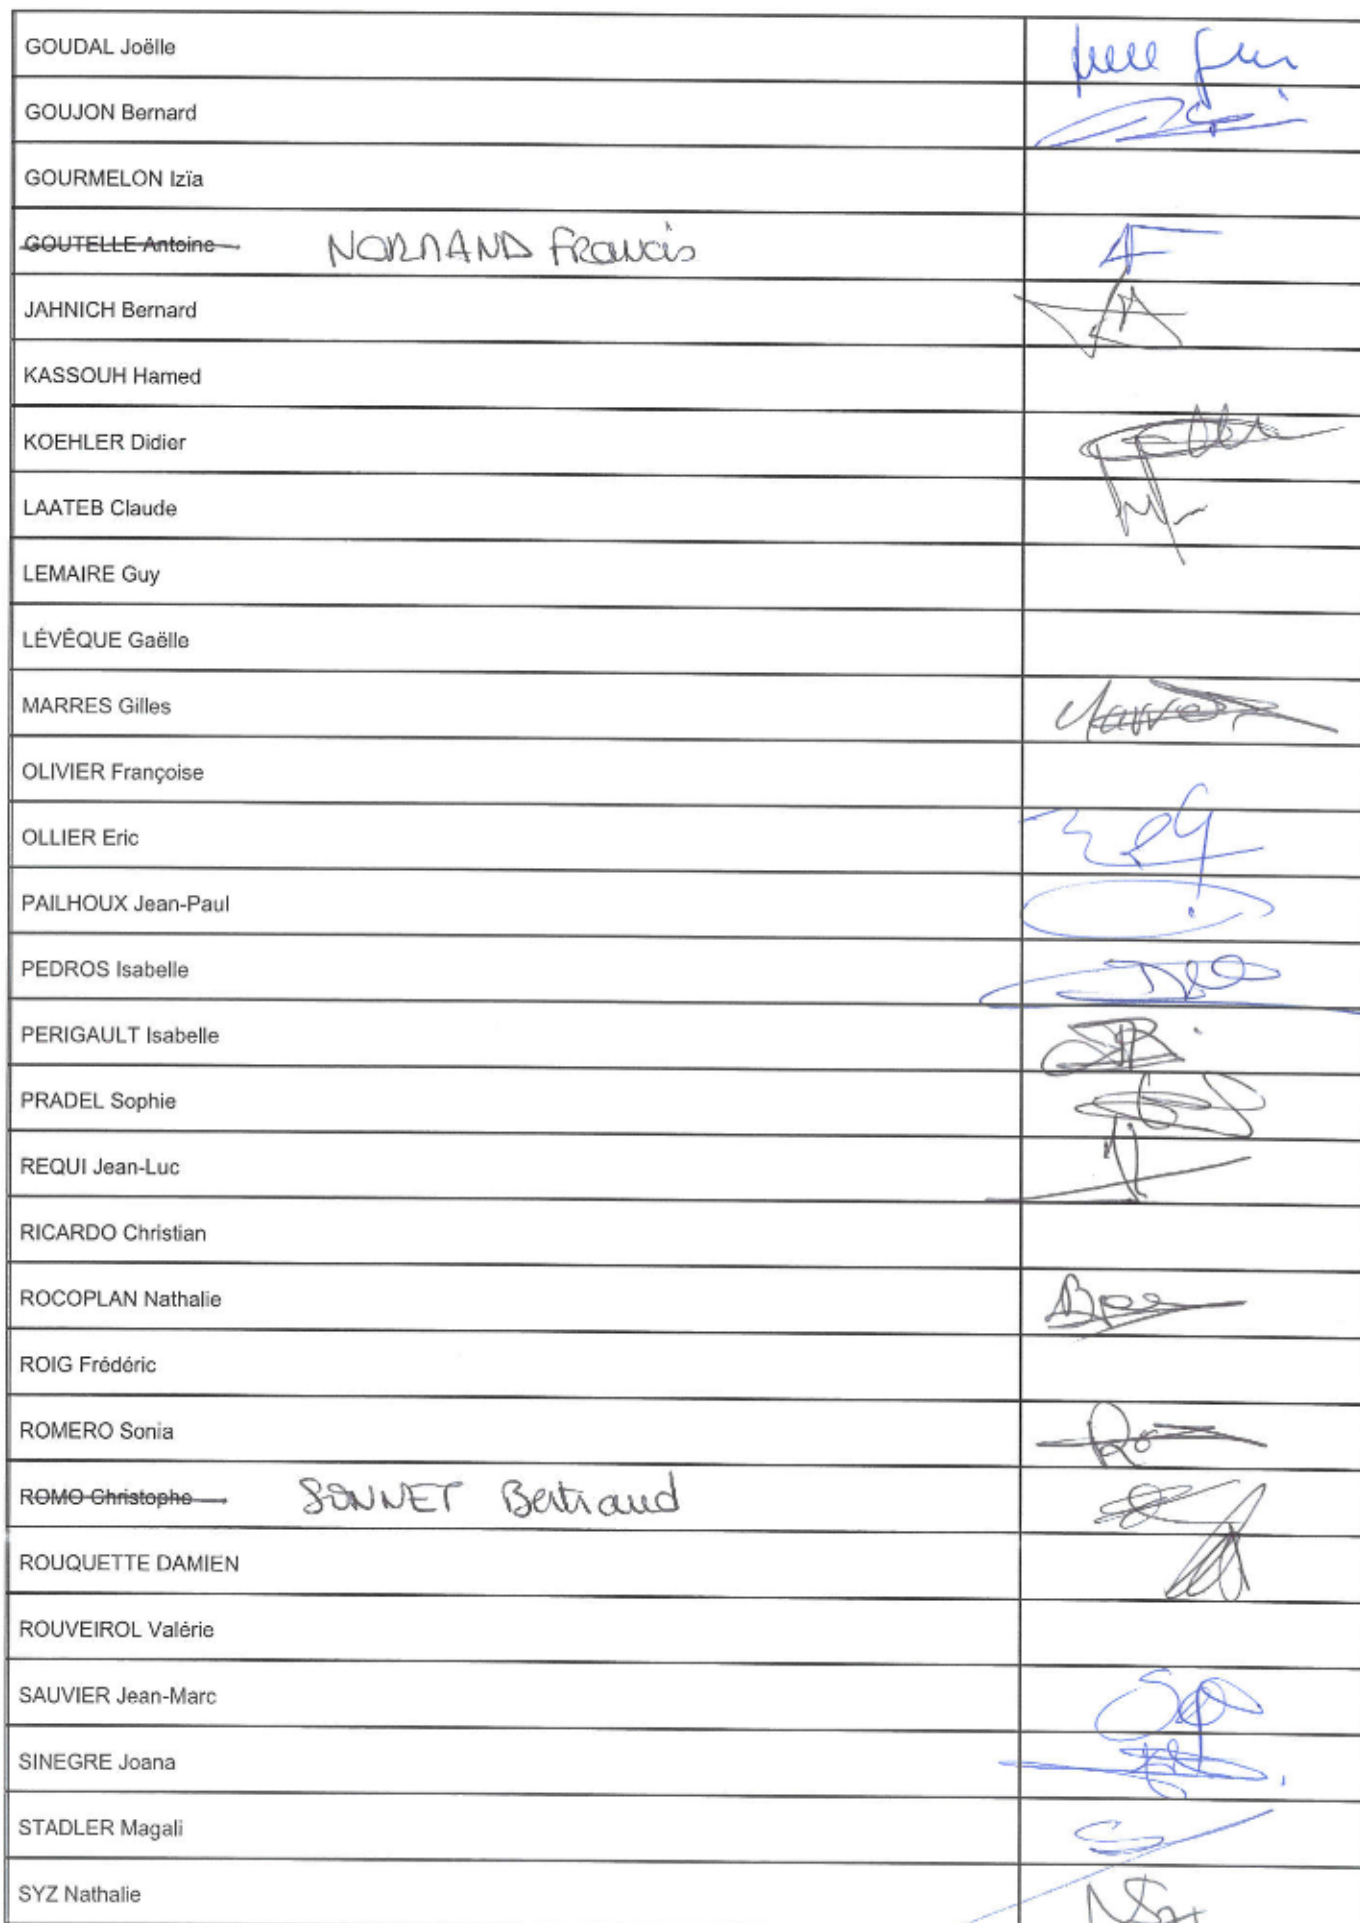 GOUDAL Joëlle
GOUJON Bernard
GOURMELON Izïa
GOUTELLE Antoine NORMAND Francis
JAHNICH Bernard
KASSOUH Hamed
KOEHLER Didier
LAATEB Claude
LEMAIRE Guy
LÉVÊQUE Gaëlle
MARRES Gilles
OLIVIER Françoise
OLLIER Eric
PAILHOUX Jean-Paul
PEDROS Isabelle
PERIGAULT Isabelle
PRADEL Sophie
REQUI Jean-Luc
RICARDO Christian
ROCOPLAN Nathalie
ROIG Frédéric
ROMERO Sonia
ROMO Christophe SONNET Bertrand
ROUQUETTE DAMIEN
ROUVEIROL Valérie
SAUVIER Jean-Marc
SINEGRE Joana
STADLER Magali
SYZ Nathalie